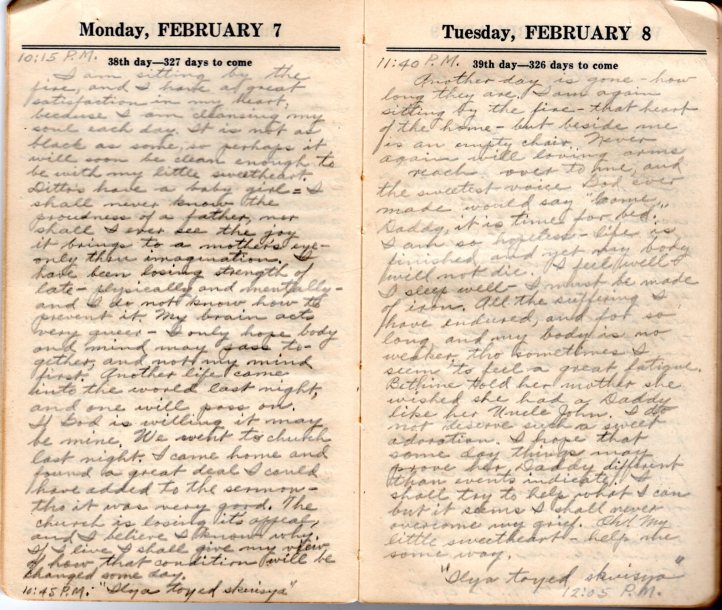 Monday, FEBRUARY 7
10:15 P.M.
38th day—327 days to come
I am sitting by the
fire, and I have a great
satisfaction in my heart,
because I am cleansing my
soul each day. It is not as
black as some, so perhaps it
will soon be clean enough to
be with my little sweetheart.
Dittos have a baby girl - I
shall never know the
proudness of a father, nor
shall I ever see the joy
it brings to a mother's eye -
only thru imagination. I
have been losing strength of
late - physically and mentally -
and I do not know how to
prevent it. My brain acts
very queer - I only hope body
and mind may pass to-
gether, and not my mind
first. Another life came
into the world last night,
and one will pass on.
If God is willing it may
be mine. We went to church
last night. I came home and
found a great deal I could
have added to the sermon -
tho it was very good. The
church is losing its appeal,
and I believe I know why.
If I live I shall give my view
of how that condition will be
changed some day.
10:45 P.M. "Ilya toyed skvisya"
Tuesday, FEBRUARY 8
11:40 P.M.
39th day—326 days to come
Another day is gone - how
long they are. I am again
sitting by the fire - that heart
of the home - but beside me
is an empty chair. Never
again will loving arms
reach over to me, and
the sweetest voice God ever
made would say "Come,
Daddy, it is time for bed."
I am so hopeless - life is
finished, and yet my body
will not die. I feel well &
I sleep well - I must be made
of iron. All the suffering I
have endured, and for so
long and my body is no
weaker, tho sometimes I
seem to feel a great fatigue.
told her mother she
wished she had a Daddy
like her Uncle John. I do
not deserve such a sweet
adoration. I hope that
some day things may
prove her Daddy different
than events indicate. I
shall try to help what I can
but it seems I shall never
overcome my grief. Oh! My
little sweetheart - help me
some way.
"Ilya toyed skvisya"
12:05 P.M.